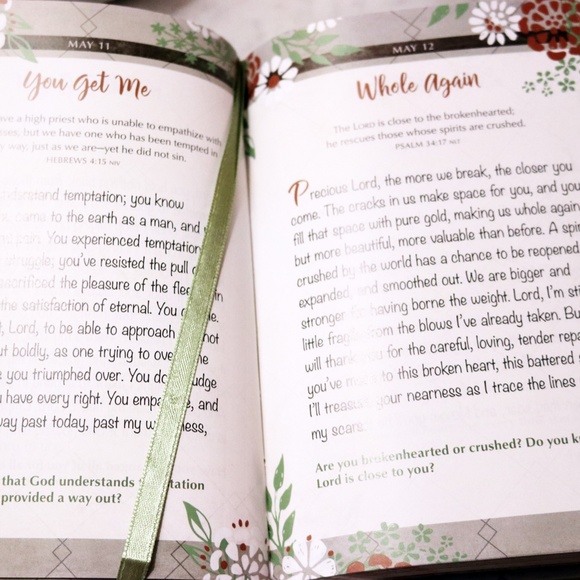 MAY 11
You Get Me
have a high priest who is unable to empathize with
but we have one who has been tempted in
way, just as we are—yet he did not sin.
HEBREWS 4:15 NIV
understand temptation; you know
came to the earth as a man, and
pain. You experienced temptation
struggle; you've resisted the pull
sacrificed the pleasure of the
the satisfaction of eternal. You
Lord, to be able to approach not
but boldly, as one trying to
you triumphed over. You do judge
have every right. You and
way past today, past my
that God understands
provided a way out?
MAY 12
Whole Again
The LORD is close to the brokenhearted;
he rescues those whose spirits are crushed.
PSALM 34:17 NLT
Precious Lord, the more we break, the closer you
come. The cracks in us make space for you, and you
fill that space with pure gold, making us whole again
but more beautiful, more valuable than before. A
crushed by the world has a chance to be reopened,
expanded, and smoothed out. We are bigger and
stronger for having borne the weight. Lord, I'm
little from the blows I've already taken. But
will thank you for the careful, loving, tender
you've to this broken heart, this battered
I'll treasure your nearness as I trace the lines
my scars.
Are you brokenhearted or crushed? Do you
Lord is close to you?